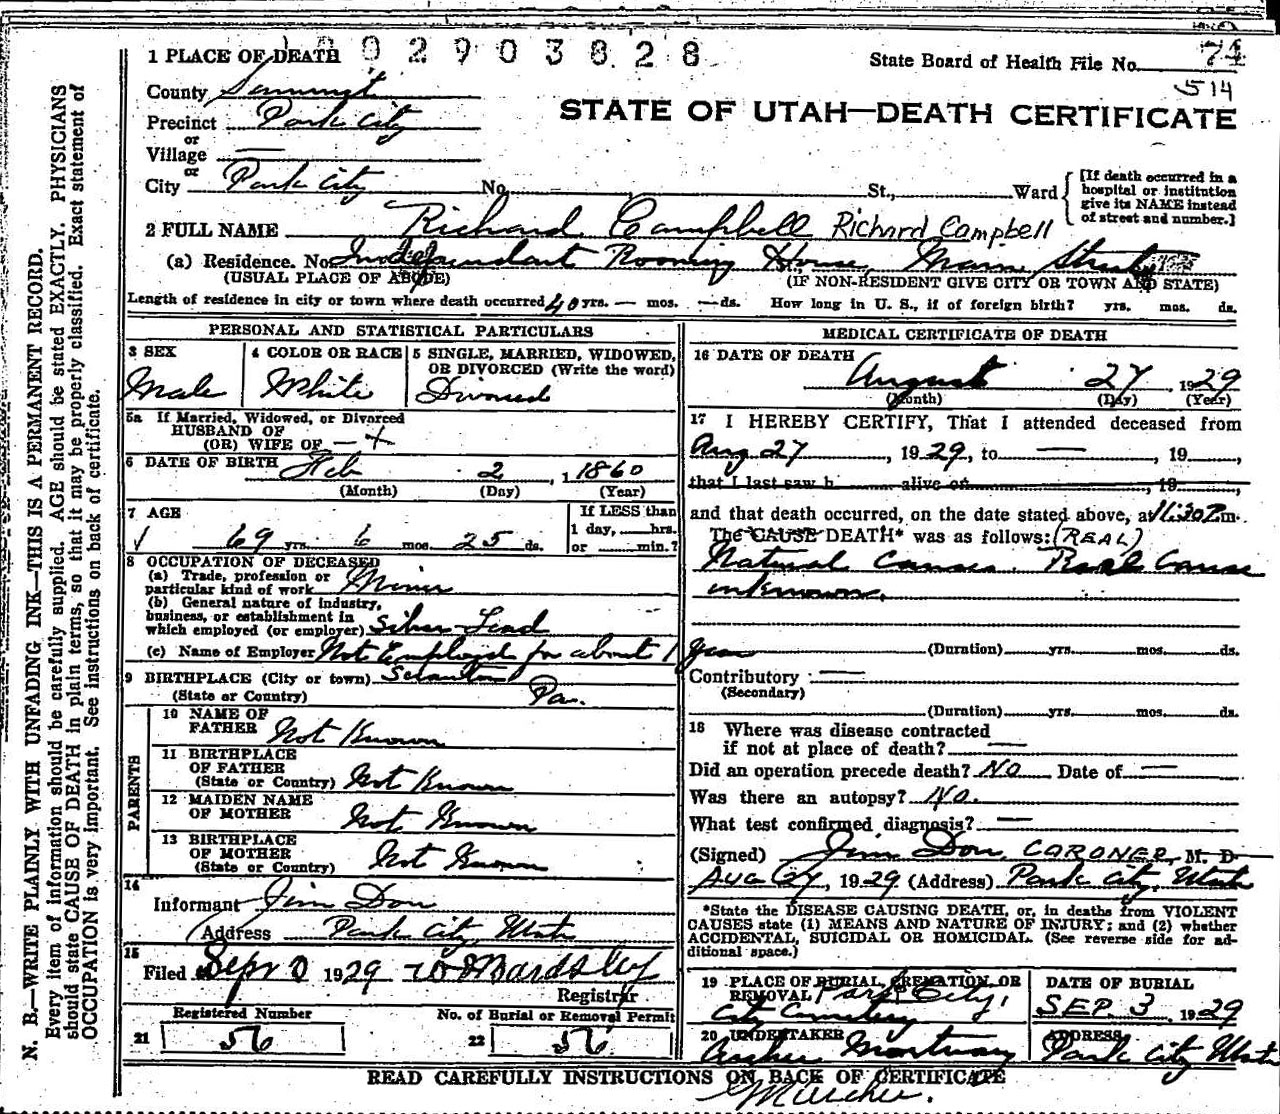 1 PLACE OF DEATH
002903828
State Board of Health File No. 74
514
County Summit
STATE OF UTAH—DEATH CERTIFICATE
Precinct Park City
or
Village —
or
City Park City No. St., Ward
[If death occurred in a
hospital or institution
give its NAME instead
of street and number.]
2 FULL NAME Richard Campbell Richard Campbell
(a) Residence. No. Independant Rooming House, Main Street
(USUAL PLACE OF ABODE) (IF NON-RESIDENT GIVE CITY OR TOWN AND STATE)
Length of residence in city or town where death occurred 40 yrs. — mos. — ds. How long in U. S., if of foreign birth? yrs. mos. ds.
PERSONAL AND STATISTICAL PARTICULARS
3 SEX
Male
4 COLOR OR RACE
White
5 SINGLE, MARRIED, WIDOWED,
OR DIVORCED (Write the word)
Divorced
5a If Married, Widowed, or Divorced
HUSBAND OF
(OR) WIFE OF —
6 DATE OF BIRTH Feb 2, 1860
(Month) (Day) (Year)
7 AGE
69 yrs. 6 mos. 25 ds.
If LESS than
1 day, hrs.
or min.?
8 OCCUPATION OF DECEASED
(a) Trade, profession or
particular kind of work Miner
(b) General nature of industry,
business, or establishment in
which employed (or employer) Silver-Lead
(c) Name of Employer Not Employed for about 1 year
9 BIRTHPLACE (City or town) Scranton
(State or Country) Pa.
PARENTS
10 NAME OF
FATHER Not Known
11 BIRTHPLACE
OF FATHER
(State or Country) Not Known
12 MAIDEN NAME
OF MOTHER Not Known
13 BIRTHPLACE
OF MOTHER
(State or Country) Not Known
14
Informant Jim Don
Address Park City, Utah
15
Filed Sept 1929
Registrar
Registered Number
21 56
No. of Burial or Removal Permit
22 56
MEDICAL CERTIFICATE OF DEATH
16 DATE OF DEATH
August 27, 1929
(Month) (Day) (Year)
17 I HEREBY CERTIFY, That I attended deceased from
Aug 27, 1929, to —, 19
that I last saw h alive on , 19
and that death occurred, on the date stated above, at 11:30 P.m.
The CAUSE DEATH* was as follows: (REAL)
Natural Causes. Real Cause
unknown.
(Duration) yrs. mos. ds.
Contributory —
(Secondary)
(Duration) yrs. mos. ds.
18 Where was disease contracted
if not at place of death? —
Did an operation precede death? No Date of —
Was there an autopsy? No.
What test confirmed diagnosis? —
(Signed) Jim Don, CORONER, M. D.
Aug 1929 (Address) Park City, Utah
*State the DISEASE CAUSING DEATH, or, in deaths from VIOLENT
CAUSES state (1) MEANS AND NATURE OF INJURY; and (2) whether
ACCIDENTAL, SUICIDAL OR HOMICIDAL. (See reverse side for ad-
ditional space.)
19 PLACE OF BURIAL, CREMATION OR
REMOVAL Park City,
City Cemetery
DATE OF BURIAL
SEP. 3, 1929
20 UNDERTAKER
Mortuary
ADDRESS
Park City Utah
READ CAREFULLY INSTRUCTIONS ON BACK OF CERTIFICATE
N. B.—WRITE PLAINLY WITH UNFADING INK—THIS IS A PERMANENT RECORD.
Every item of information should be carefully supplied. AGE should be stated EXACTLY. PHYSICIANS
should state CAUSE OF DEATH in plain terms, so that it may be properly classified. Exact statement of
OCCUPATION is very important. See instructions on back of certificate.